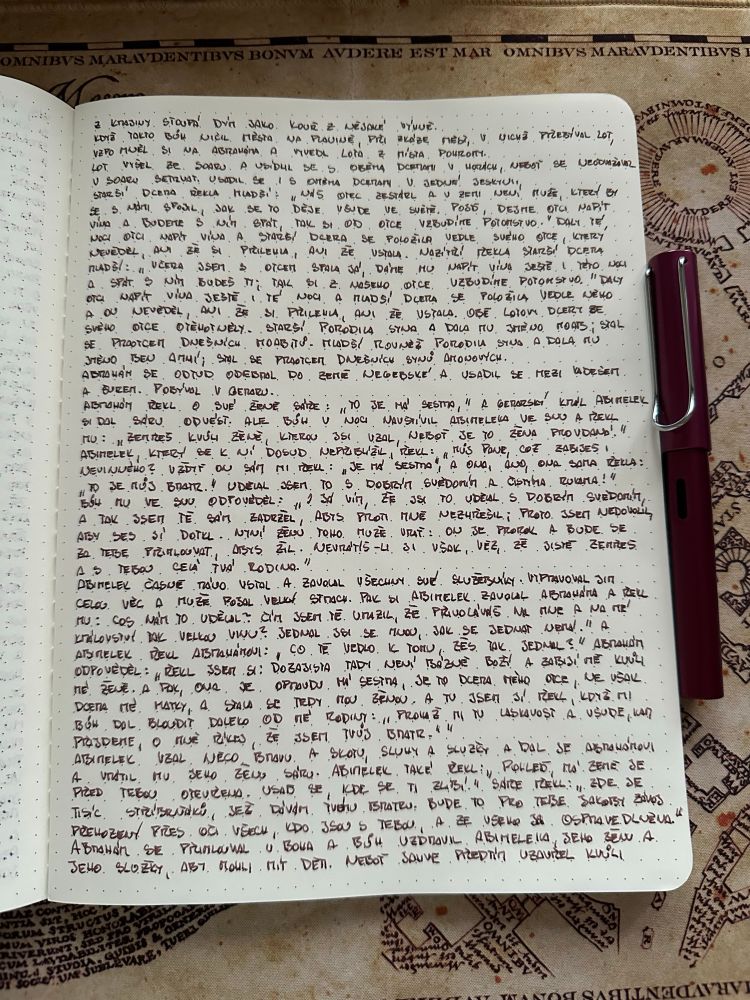 OMNIBVS MARAVDENTIBVS BONVM AVDERE EST MAR OMNIBVS MARAVDENTIBVS
Z KRAJINY STOUPÁ DÝM JAKO KOUŘ Z NĚJAKÉ VÝHNĚ.
KDYŽ TAKTO BŮH NIČIL MĚSTA NA PLANINĚ, PŘI ZKÁZE MĚST, V NICHŽ PŘEBÝVAL LOT,
VZPOMNĚL SI NA ABRAHÁMA A VYVEDL LOTA Z MÍSTA POHROMY.
LOT VYŠEL ZE SOARU A USÍDLIL SE S OBĚMA DCERAMI V HORÁCH, NEBOŤ SE NEODVAŽOVAL
V SOARU SETRVAT. USADIL SE I S OBĚMA DCERAMI V JEDNÉ JESKYNI.
STARŠÍ DCERA ŘEKLA MLADŠÍ: „NÁŠ OTEC ZESTÁRL A V ZEMI NENÍ MUŽE, KTERÝ BY
SE S NÁMI SPOJIL, JAK SE TO DĚJE VŠUDE VE SVĚTĚ. POJĎ, DEJME OTCI NAPÍT
VÍNA A BUDEME S NÍM SPÁT, TAK SI OD OTCE VZBUDÍME POTOMSTVO." DALY TÉ
NOCI OTCI NAPÍT VÍNA A STARŠÍ DCERA SE POLOŽILA VEDLE SVÉHO OTCE, KTERÝ
NEVĚDĚL, ANI ŽE SI PŘILEHLA, ANI ŽE VSTALA. NAZÍTŘÍ ŘEKLA STARŠÍ DCERA
MLADŠÍ: „VČERA JSEM S OTCEM SPALA JÁ, DÁME MU NAPÍT VÍNA JEŠTĚ I TÉTO NOCI
A SPÁT S NÍM BUDEŠ TY; TAK SI Z NAŠEHO OTCE VZBUDÍME POTOMSTVO." DALY
OTCI NAPÍT VÍNA JEŠTĚ I TÉ NOCI A MLADŠÍ DCERA SE POLOŽILA VEDLE NĚHO
A ON NEVĚDĚL, ANI ŽE SI PŘILEHLA, ANI ŽE VSTALA. OBĚ LOTOVY DCERY ZE
SVÉHO OTCE OTĚHOTNĚLY. STARŠÍ PORODILA SYNA A DALA MU JMÉNO MOÁB; STAL
SE PRAOTCEM DNEŠNÍCH MOÁBŮ. MLADŠÍ ROVNĚŽ PORODILA SYNA A DALA MU
JMÉNO BEN AMMÍ; STAL SE PRAOTCEM DNEŠNÍCH SYNŮ AMONOVÝCH.
ABRAHÁM SE ODTUD ODEBRAL DO ZEMĚ NEGEBSKÉ A USADIL SE MEZI KÁDEŠEM
A ŠUREM. POBÝVAL V GERARU.
ABRAHÁM ŘEKL O SVÉ ŽENĚ SÁŘE: „TO JE MÁ SESTRA," A GERARSKÝ KRÁL ABÍMELEK
SI DAL SÁRU ODVÉST. ALE BŮH V NOCI NAVŠTÍVIL ABÍMELEKA VE SNU A ŘEKL
MU: „ZEMŘEŠ KVŮLI ŽENĚ, KTEROU JSI VZAL, NEBOŤ JE TO ŽENA PROVDANÁ!"
ABÍMELEK, KTERÝ SE K NÍ DOSUD NEPŘIBLÍŽIL, ŘEKL: „MŮJ PANE, COŽ ZABIJEŠ I
NEVINNÉHO? VŽDYŤ ON SÁM MI ŘEKL: „JE MÁ SESTRA", A ONA, ANO, ONA SAMA ŘEKLA:
„TO JE MŮJ BRATR." UDĚLAL JSEM TO S DOBRÝM SVĚDOMÍM A ČISTÝMA RUKAMA!"
BŮH MU VE SNU ODPOVĚDĚL: „I JÁ VÍM, ŽE JSI TO UDĚLAL S DOBRÝM SVĚDOMÍM,
A TAK JSEM TĚ SÁM ZADRŽEL, ABYS PROTI MNĚ NEZHŘEŠIL; PROTO JSEM NEDOVOLIL,
ABY SES JÍ DOTKL. NYNÍ ŽENU TOHO MUŽE VRAŤ: ON JE PROROK A BUDE SE
ZA TEBE PŘIMLOUVAT, ABYS ŽIL. NEVRÁTÍŠ-LI JI VŠAK, VĚZ, ŽE JISTĚ ZEMŘEŠ
A S TEBOU CELÁ TVÁ RODINA."
ABÍMELEK ČASNĚ RÁNO VSTAL A ZAVOLAL VŠECHNY SVÉ SLUŽEBNÍKY. VYPRAVOVAL JIM
CELOU VĚC A MUŽE POJAL VELKÝ STRACH. PAK SI ABÍMELEK ZAVOLAL ABRAHÁMA A ŘEKL
MU: COS NÁM TO UDĚLAL? ČÍM JSEM TĚ URAZIL, ŽE PŘIVOLÁVÁŠ NA MNE A NA MÉ
KRÁLOVSTVÍ TAK VELKOU VINU? JEDNAL JSI SE MNOU, JAK SE JEDNAT NEMÁ!" A
ABÍMELEK ŘEKL ABRAHÁMOVI: „CO TĚ VEDLO K TOMU, ŽES TAK JEDNAL?" ABRAHÁM
ODPOVĚDĚL: „ŘEKL JSEM SI: DOZAJISTA TADY NENÍ BÁZNĚ BOŽÍ A ZABIJÍ MĚ KVŮLI
MÉ ŽENĚ. A PAK, ONA JE OPRAVDU MÁ SESTRA, JE TO DCERA MÉHO OTCE, NE VŠAK
DCERA MÉ MATKY, A STALA SE TEDY MOU ŽENOU. A TU JSEM JÍ ŘEKL, KDYŽ MI
BŮH DAL BLOUDIT DALEKO OD MÉ RODINY: „PROKAŽ MI TU LASKAVOST A VŠUDE, KAM
PŘIJDEME, O MNĚ ŘÍKEJ, ŽE JSEM TVŮJ BRATR.""
ABÍMELEK VZAL NĚCO BRAVU A SKOTU, SLUHY A SLUŽKY A DAL JE ABRAHÁMOVI
A VRÁTIL MU JEHO ŽENU SÁRU. ABÍMELEK TAKÉ ŘEKL: „POHLEĎ, MÁ ZEMĚ JE
PŘED TEBOU OTEVŘENA. USAĎ SE, KDE SE TI ZLÍBÍ." SÁŘE ŘEKL: „ZDE JE
TISÍC STŘÍBRŇÁKŮ, JEŽ DÁVÁM TVÉMU BRATRU. BUDE TO PRO TEBE JAKOBY ZÁVOJ
PŘEHOZENÝ PŘES OČI VŠECH, KDO JSOU S TEBOU, A ZE VŠEHO JSI OSPRAVEDLNĚNA."
ABRAHÁM SE PŘIMLOUVAL U BOHA A BŮH UZDRAVIL ABÍMELEKA, JEHO ŽENU A
JEHO SLUŽKY, ABY MOHLI MÍT DĚTI. NEBOŤ JAHVE PŘEDTÍM UZAVŘEL KVŮLI